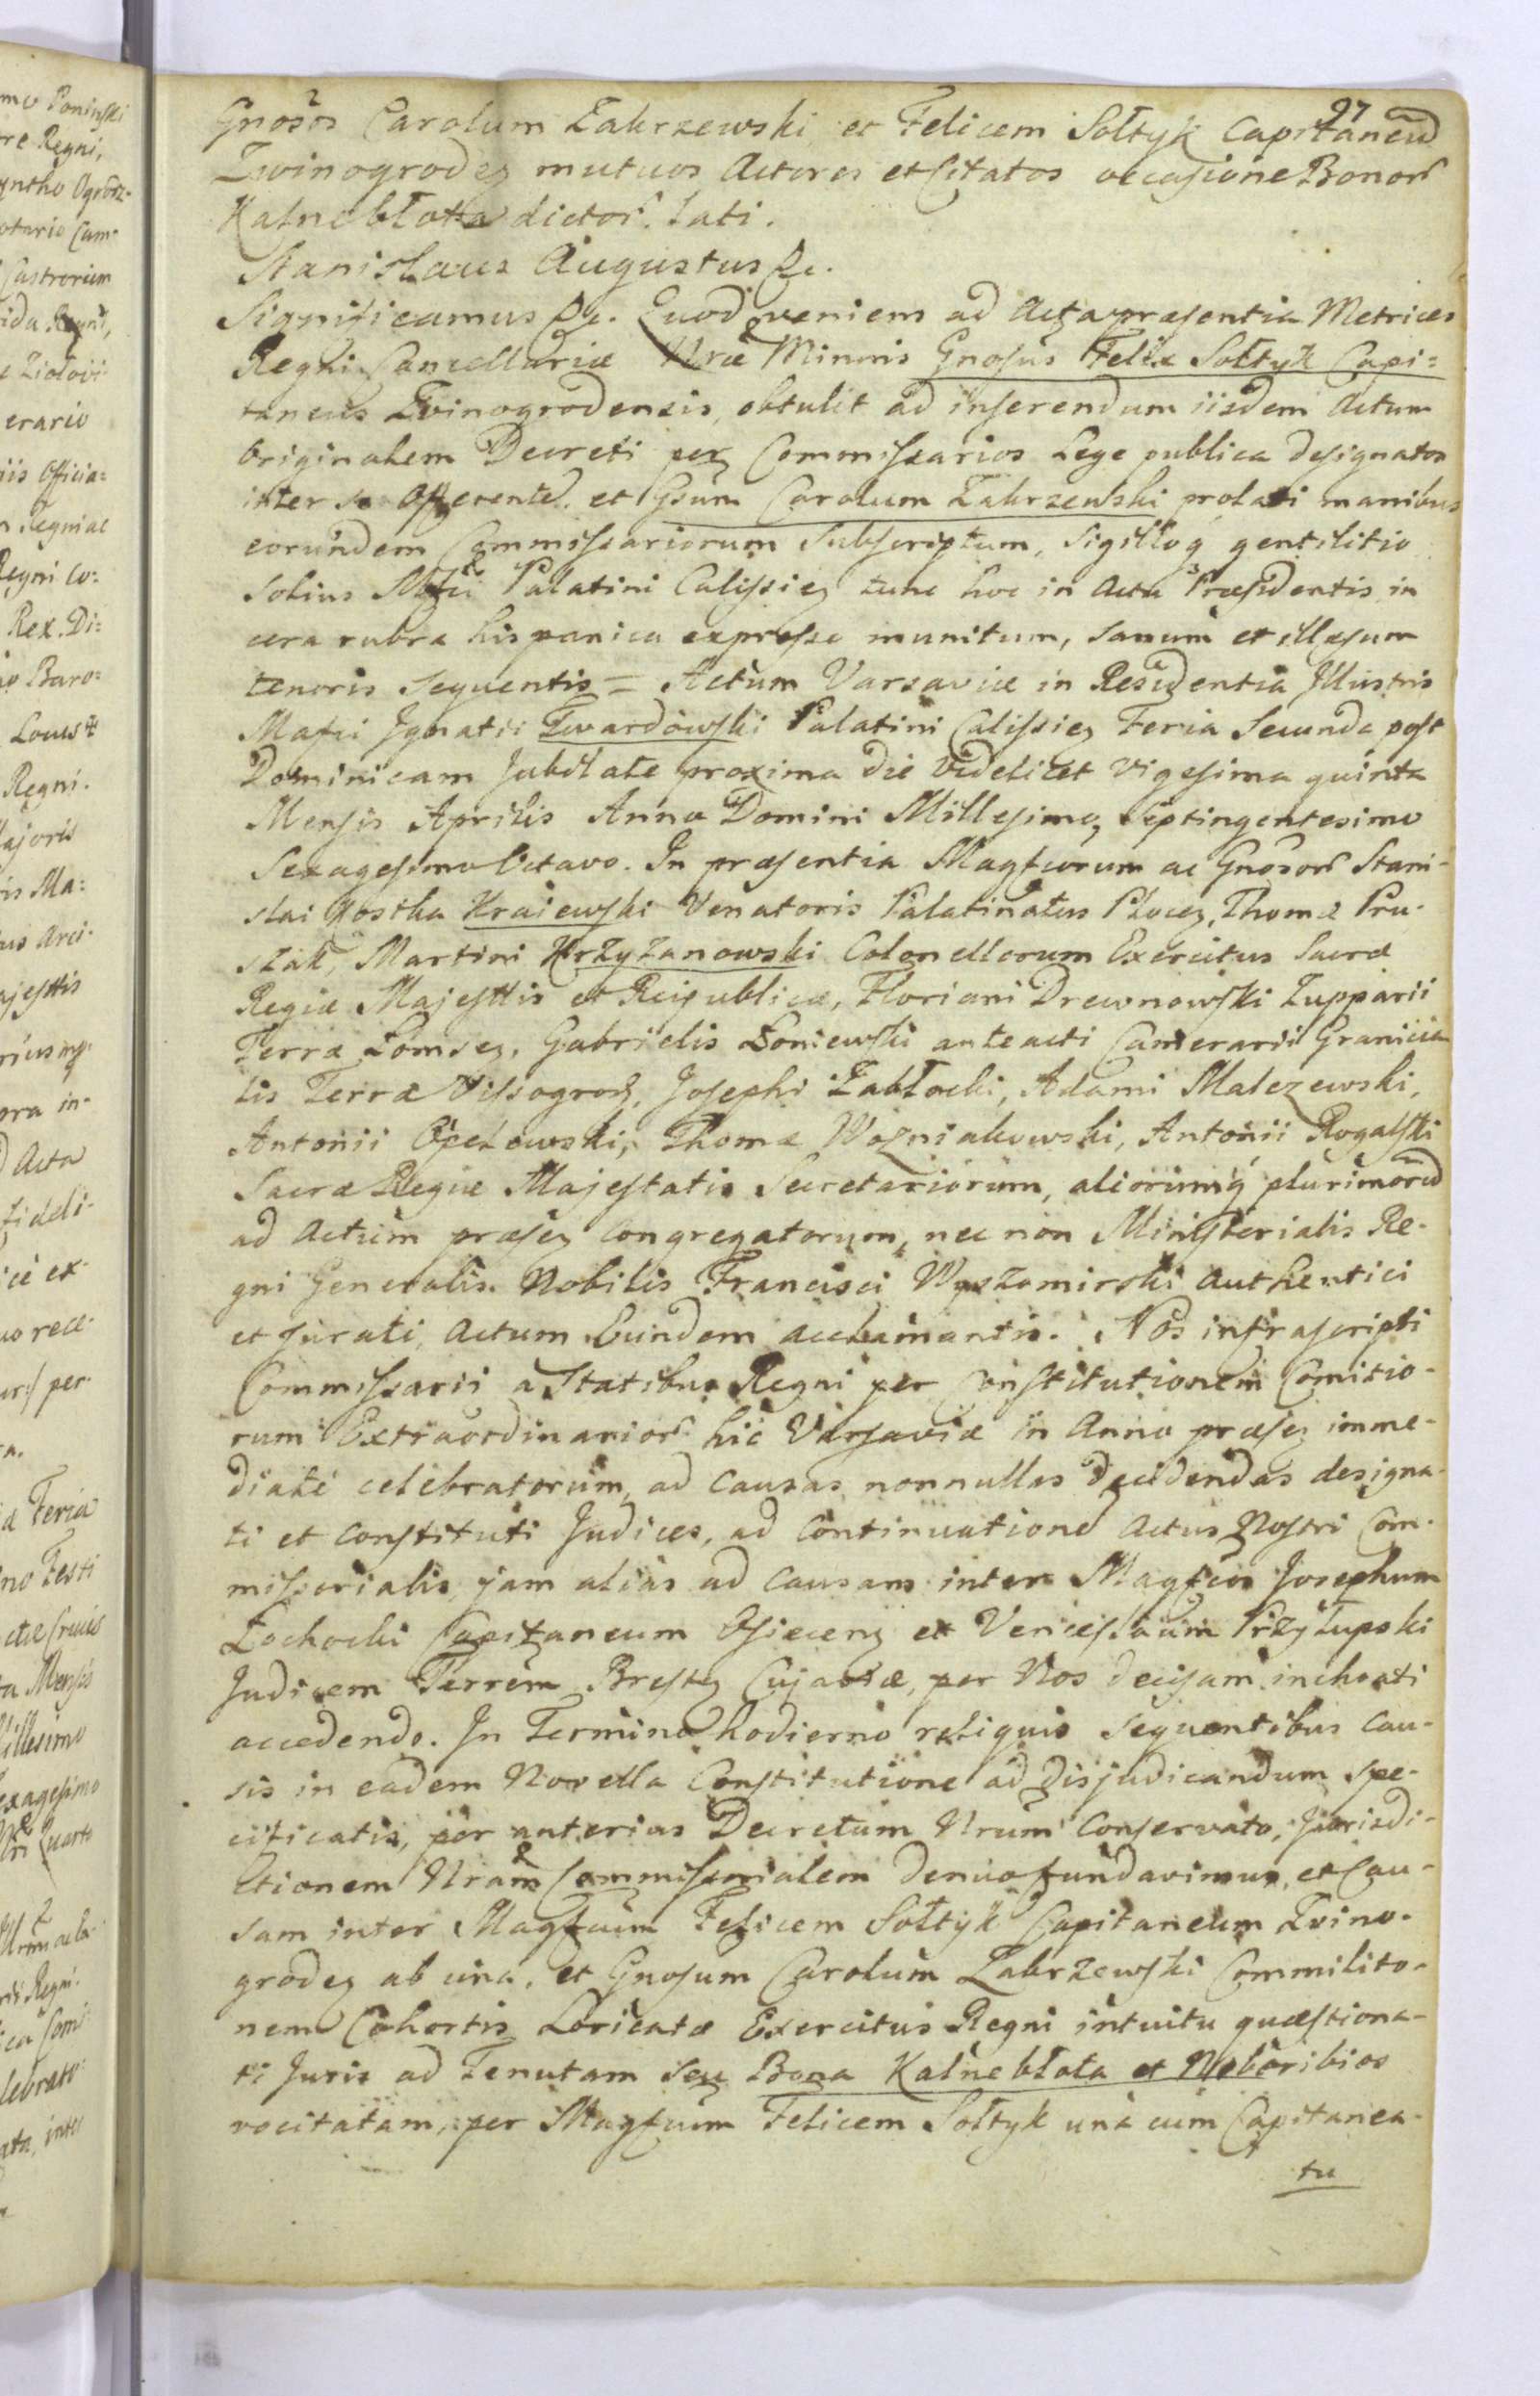 27
Gnosos Carolum Zakrzewski et Felicem Sołtyk Capitaneū
Zwinogrodeȝ mutuos Actores et Citatos occasione Bonor
Kalnebłota dictor. lati.
Stanislaus Augustus &c.
Significamus &c. Quod veniens ad Acta præsentia Metrices
Regni Cancellariæ Nræ Minoris Gnosus Felix Sołtyk Capi=
taneus Zvinogrodensis, obtulit ad inserendum iisdem Actum
Originalem Decreti per Commissarios Lege publica designatos
inter se Offerente. et Gsum Carolum Zakrzewski prolati manibus
eorundem Commissariorum Subscriptum, Sigilloq gentilitio
Solius Mgfci Palatini Calissieȝ tunc hoc in Actu Præsidentis in
cera rubra hispanica expresso munitum, Sanum et illæsum
tenoris sequentis = Actum Varsaviæ in Residentia Illustris
Mgfci Ignatii Twardowski Palatini Calissieȝ Feria Secunda post
Dominicam Jubilate proxima die videlicet vigesima quinta
Mensis Aprilis Anno Domini Millesimo, Septingentesimo
Sexagesimo Octavo. In præsentia Magfcorum ac Gnosor Stani-
slai Kostka Kraiewski Venatoris Palatinatus Płoceȝ, Thomæ Pru-
szak, Martini Krzyżanowski Colonellorum Exercitus Sacræ
Regiæ Majesttis et Reipublicæ, Floriani Drewnowski Zupparii
Terræ Łomzeȝ, Gabrielis Łoniewski anteacti Camerarii Granicia
lis Terræ Vissogrod, Josephi Zabłocki, Adami Malczewski,
Antonii Opelewski, Thomæ Wozniakowski, Antonii Rogalski
Sacræ Regiæ Majestatis Secretariorum, aliorumq́ plurimorū
ad Actum præseȝ congregatorum, nec non Ministerialis Re-
gni Generalis Nobilis Francisci Wyszomirski Authentici
et Jurati, Actum Eundem acclamantis. Nos infrascripti
Commissarii a Statibus Regni per Constitutionem Comitio-
rum Extraordinarior hic Varsaviæ in Anno præseȝ imme-
diate celebratorum, ad Causas nonnullas decidendas designa-
ti et constituti Judices, ad Continuatione Actus Nostri Com-
missorialis jam alias ad Causam inter Magfcos Josephum
Łochocki Capitaneum Osieceȝ et Venceslaum Przyłupski
Judicem Terrem Bresteȝ Cujaviæ, per Nos decisam inchoati
accedendo. In Termino hodierno reliquis Sequentibus Cau-
sis in eadem Novella Constitutione ad disjudicandum spe-
cificatis, per anterius Decretum Nrum Conservato, Jurisdi-
ctionem Nram Commissorialem denuo fundavimus, et Cau-
sam inter Magfcum Felicem Sołtyk Capitaneum Zvino-
grodeȝ ab una, et Gnosum Carolum Zakrzewski Commilito-
nem Cohortis Loricatæ Exercitus Regni intuitu quæstiona-
ti Juris ad Tenutam seu Bona Kalnebłota et Neboribios
vocitatam, per Magfcum Felicem Sołtyk una cum Capitanea-
tu